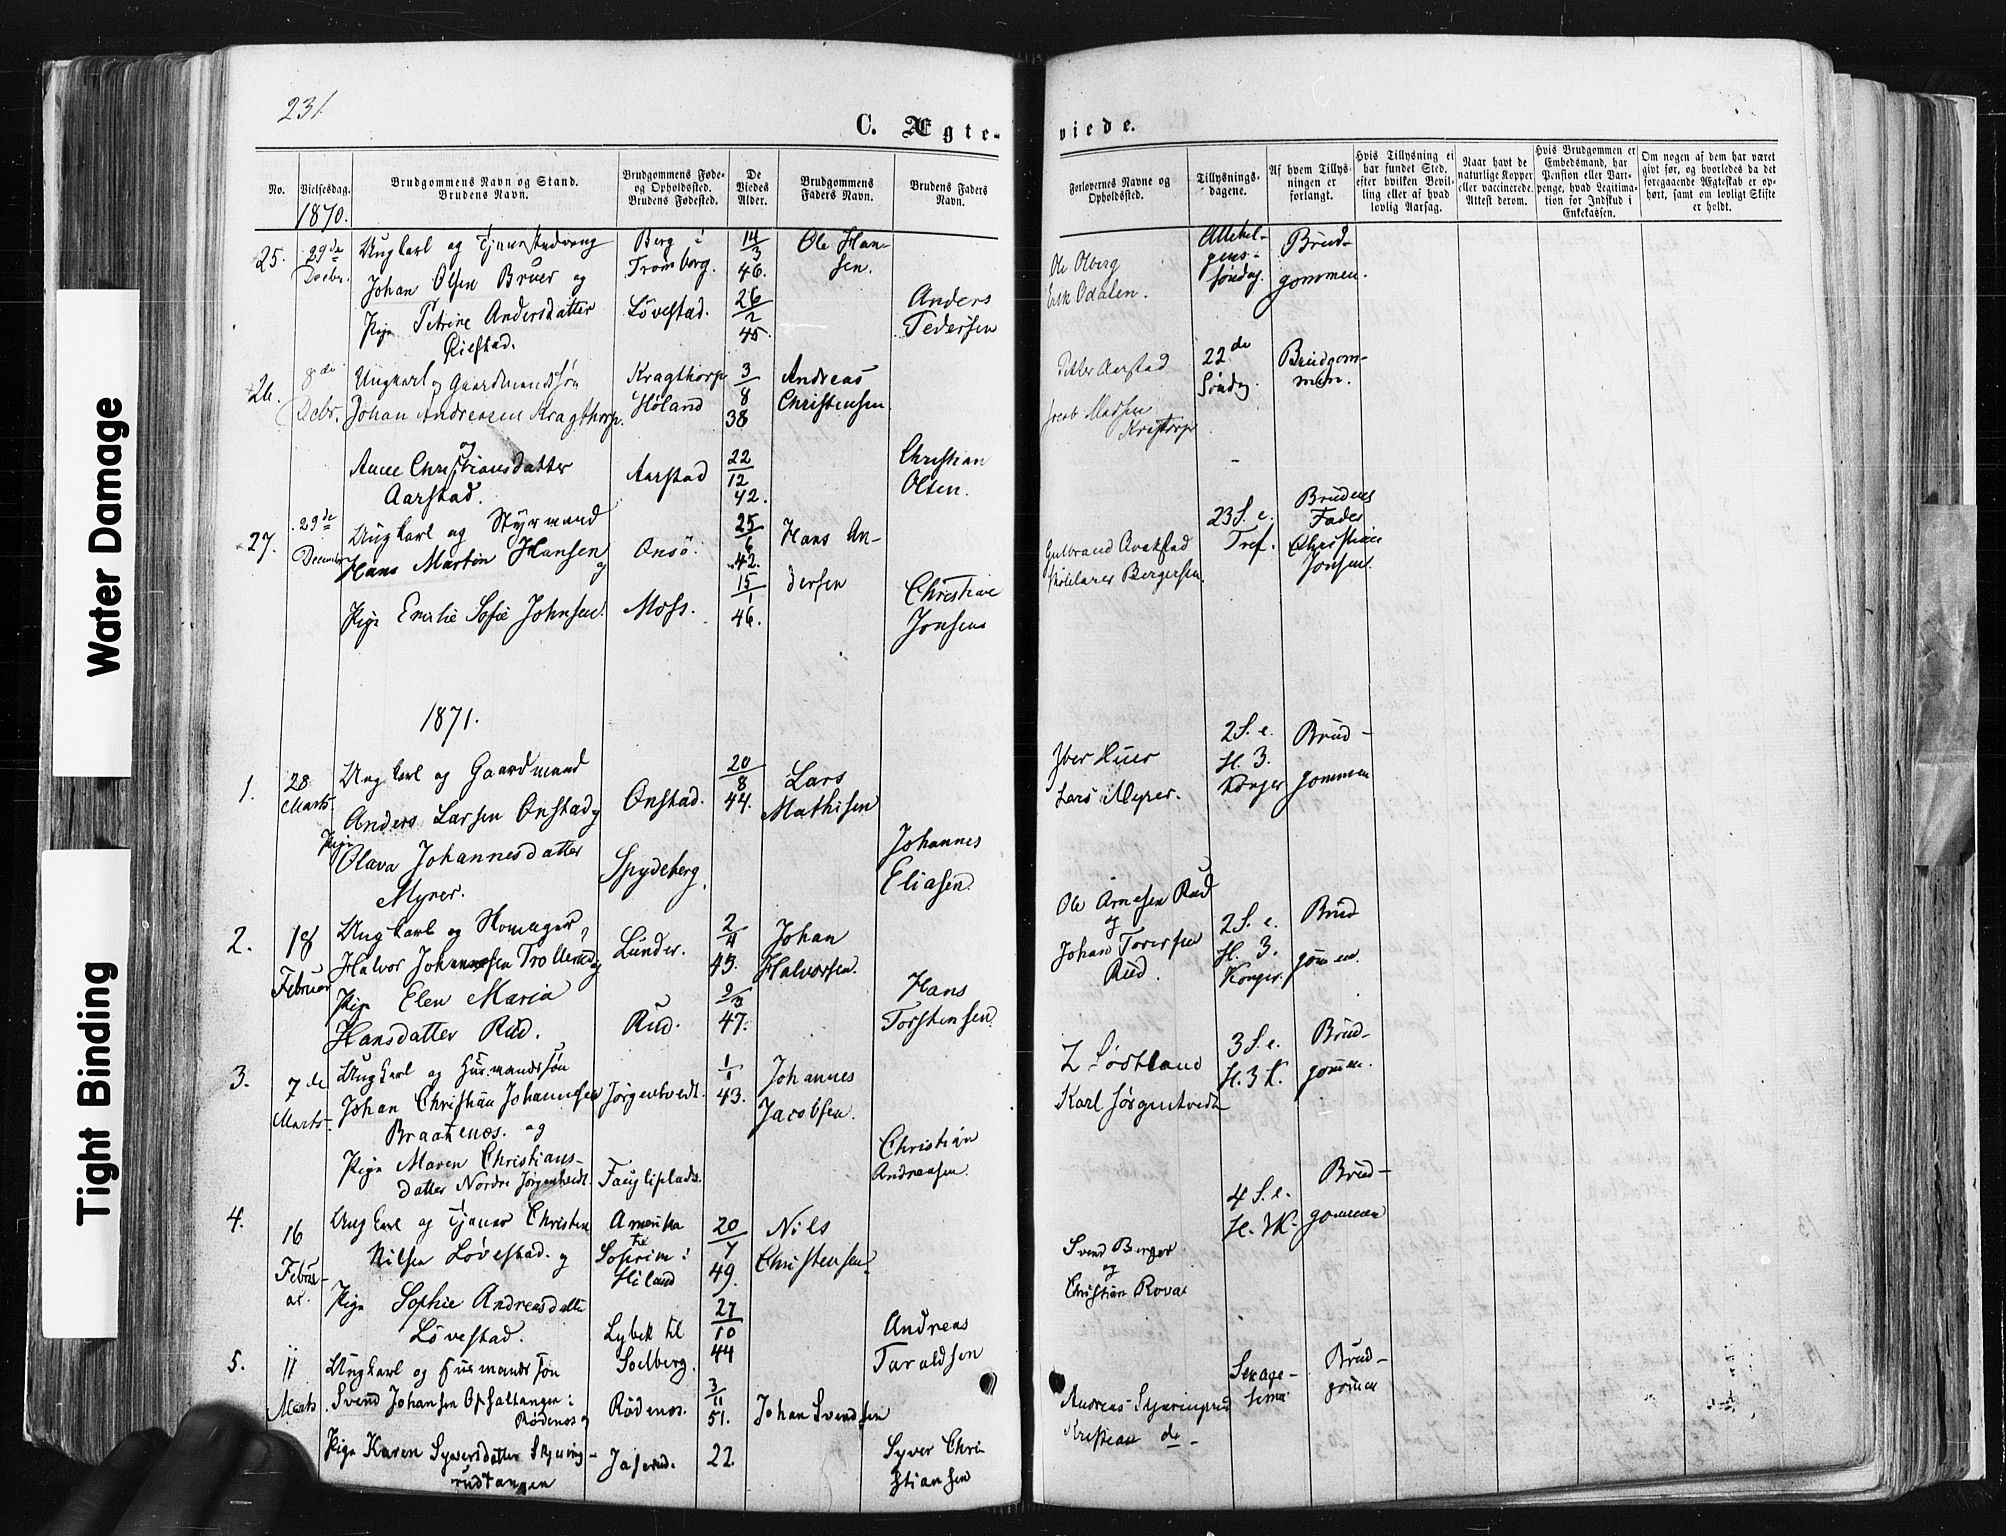 231
C. Ægte-
viede.
No.
Vielsesdag.
Brudgommens Navn og Stand.
Brudens Navn.
Brudgommens Føde-
og Opholdssted.
Brudens Fødested.
De
Viedes
Alder.
Brudgommens
Faders Navn.
Brudens Faders
Navn.
Forlovernes Navne og
Opholdssted.
Tillysnings-
dagene.
Af hvem Tillys-
ningen er
forlangt.
Hvis Tillysning ei
har fundet Sted,
efter hvilken Bevil-
ling eller af hvad
lovlig Aarsag.
Naar havt de
naturlige Kopper
eller vaccinerede.
Attest derom.
Hvis Brudgommen er
Embedsmand, har
Pension eller Vart-
penge, hvad Legitima-
tion for Indskud i
Enkekassen.
Om nogen af dem har været
gift før, og hvorledes da det
foregaaende Ægteskab er op-
hørt, samt om lovligt Skifte
er holdt.
1870.
25. 29de Decbr.
Ungkarl og
Johan Olsen Bruer og
Pige Petrine Andersdatter
Berg i
Tromborg.
Løvestad.
14/3 46.
26/2 45
Ole Han-
sen.
Anders
Pedersen
Ole Olberg
Erik Odalen.
Allehel-
gens-
søndag.
Brud-
gommen.
26. Decbr.
Ungkarl og Gaardmandssøn
Johan Andreasen Kragthorp.
og
Anne Christiansdatter
Aarstad.
Kragthorp
Høland
Aarstad
3/8 38
22/12 42.
Andreas
Christensen
Christian
Olsen.
Aarstad
Jacob Madsen
22de
Søndg.
Brudgom-
men.
27. 29de December
Ungkarl og Styrmand
Hans Martin Hansen
og
Pige Emilie Sofie Johnsen.
Onsö.
Moss.
25/6 42.
15/1 46.
Hans An-
dersen
Christian
Jonsen
Gulbrand
Bergersen.
23 S. e.
Tref.
Brudens
Fader
Christian
Jonsen.
1871.
1. 28 Marts.
Ungkarl og Gaardmand
Anders Larsen Onstad og
Pige
Olava Johannesdatter
Myrer.
Onstad.
Spydeberg.
20/8 44.
Lars
Mathisen
Johannes
Eliasen.
Iver Huer
Lars Myrer.
2 S. e.
H. 3.
Konger
Brud-
gommen
2. 18 Februar
Ungkarl og
Halvor Johannesen Trollerud og
Pige Elen Maria
Hansdatter Rud.
Lunder.
Rud.
2/4 45.
9/3 47.
Johan
Halvorsen.
Hans
Torstensen.
Ole Arnesen Rud
og
Johan Torersen
Rud.
2 S. e.
H. 3.
Konger.
Brud
gommen.
3. 7de Marts.
Ungkarl og Husmandssøn
Johan Christian Johannesen
Braatenæs. og
Pige Maren Christians-
datter Nordre Jørgentvedt.
Jørgentvedt.
1/1 43.
Johannes
Jacobsen.
Christian
Andreasen.
Z Södtland
Karl Jörgentvedt
3 S. e.
H. 3 K.
Brud-
gommen.
4. 16 Febru-
ar.
Ungkarl og Tjener Christen
Nilsen Løvestad. og
Pige Sophie Andreasdatter
Løvestad.
Amerika
Hiland
Lybek til
Soelberg.
20/7 49.
27/10 44
Nils
Christensen.
Andreas
Taraldsen
Svend Berger
og
Christian Rovar
4 S. e.
H. 3 K.
Brud-
gommen
5. 11 Marts
Ungkarl og Husmandssøn
Svend Johansen Opsaltangen i
Rødenæs og
Pige Karen Syversdatter Skjøring-
rudtangen
Rødenæs.
Jaserud.
3/11 51.
22.
Johan Svendsen
Syver Chri
stiansen
Andreas Skjøringrud
Kristian do
Sexage-
sima
Brud-
gommen
Water Damage
Tight Binding